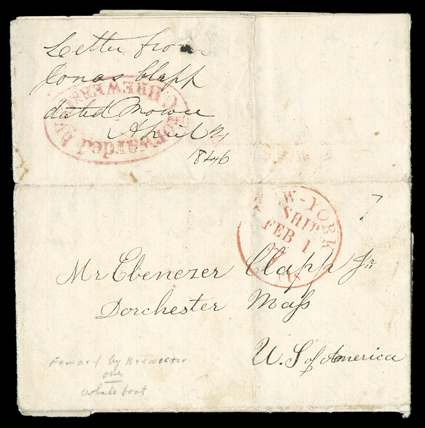 Letter from
Jonas Clapp
dated Mowee
April
1846
Forwarded by
C. BREWER
NEW-YORK
SHIP
FEB 1
7
Mr Ebenezer Clapp Jr
Dorchester Mass
U.S of America
Foward by Brewester
over
whale boat